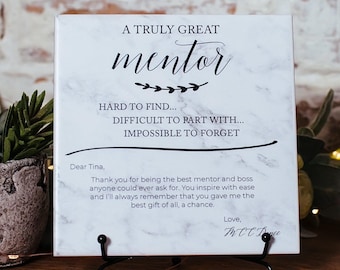 A TRULY GREAT
mentor
HARD TO FIND...
DIFFICULT TO PART WITH...
IMPOSSIBLE TO FORGET
Dear Tina,
Thank you for being the best mentor and boss
anyone could ever ask for. You inspire with ease
and i'll always remember that you gave me the
best gift of all, a chance.
Love,